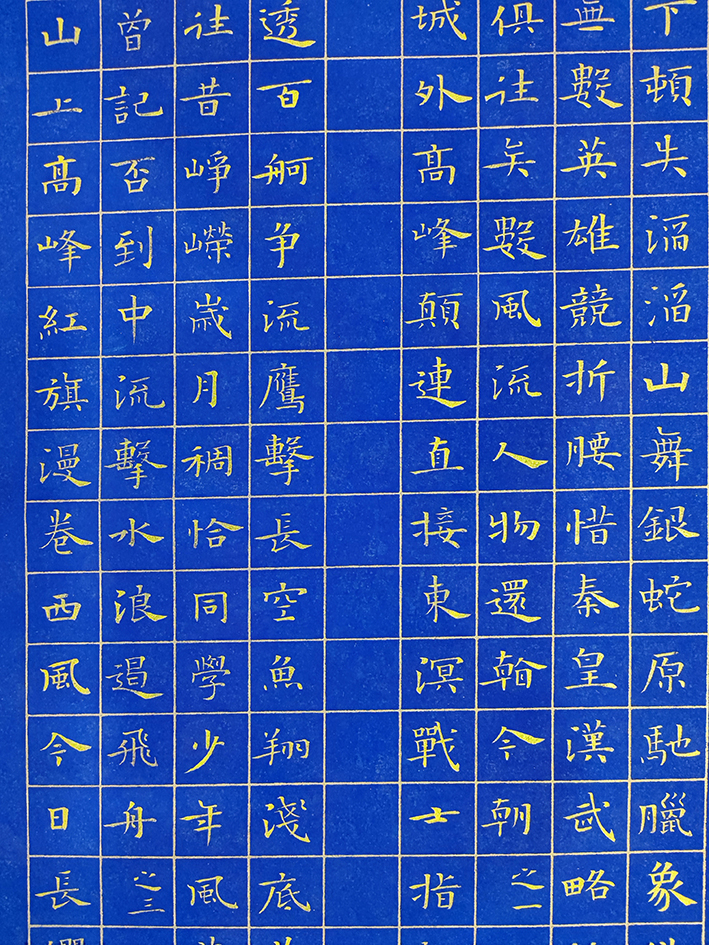 下頓失滔滔山舞銀蛇原馳臘象
無數英雄競折腰惜秦皇漢武略
俱往矣數風流人物還看今朝之一
城外髙峰顛連直接東溟戰士指
透百舸争流鷹擊長空魚翔淺底
往昔崢嶸嵗月稠恰同學少年風
曾記否到中流擊水浪遏飛舟之三
山上髙峰紅旗漫卷西風今日長